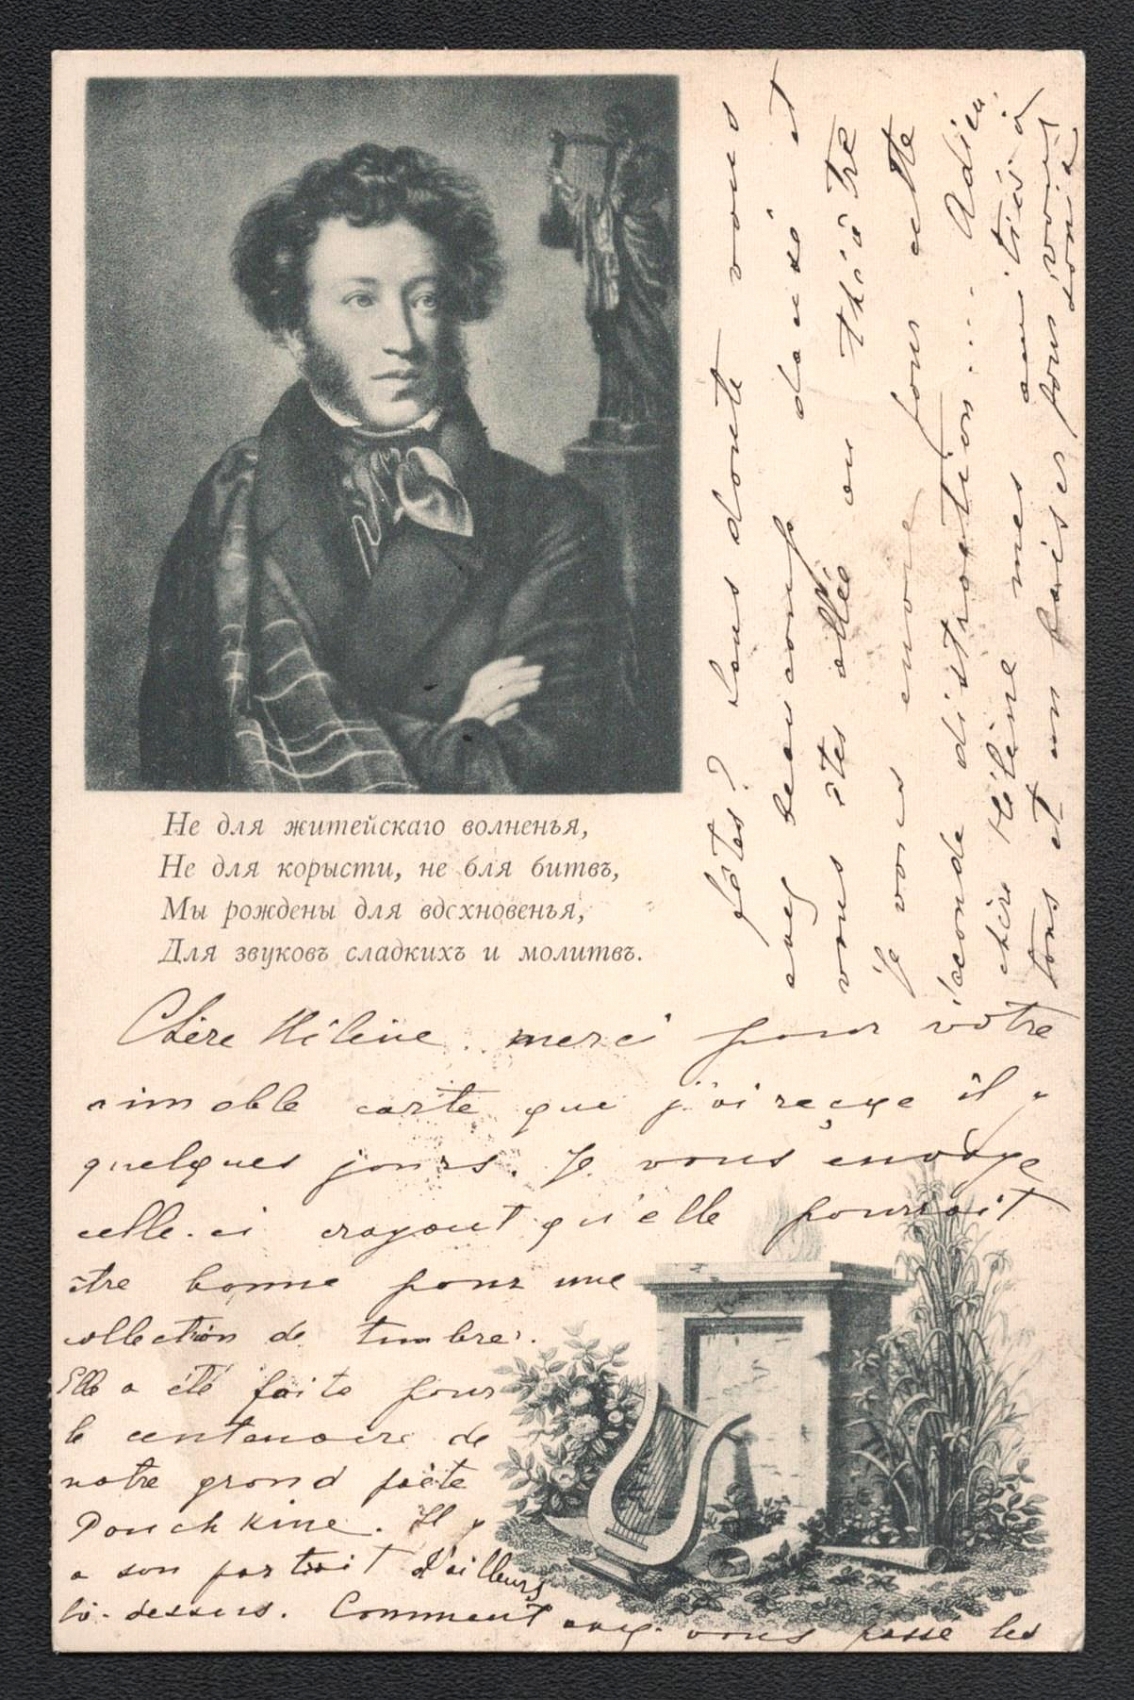 Не для житейскаго волненья,
Не для корысти, не бля битвъ,
Мы рождены для вдсхновенья,
Для звуковъ сладкихъ и молитвъ.
Chère Hélène. merci pour votre
aimable carte que j'ai reçue il y
quelques jours. Je vous envoye
celle-ci croyant qu'elle pourrait
être bonne pour une
collection de timbres.
Elle a été faite pour
le centenaire de
notre grand poète
Pouchkine. Il y
a son portrait d'ailleurs
là-dessus. Comment avez-vous passé les
fêtes? Sans doute vous
avez beaucoup dansé et
vous êtes allée au théâtre
Je vous envoie pour cette
seconde distraction.... Adieu.
chère Hélène mes amitiés à
tous et un baiser pour vous
Sonia